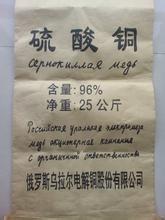 硫酸铜
сернокиллая медь
含量: 96%
净重: 25公斤
Российская уральная электролиза
медь акционерная компания
с органичной ответственность
俄罗斯乌拉尔电解铜股份有限公司